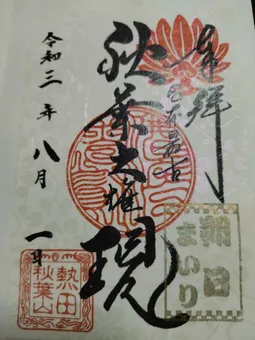 奉拝
日本最古
秋葉大権現
令和三年八月一日
朔日まいり
熱田
秋葉山